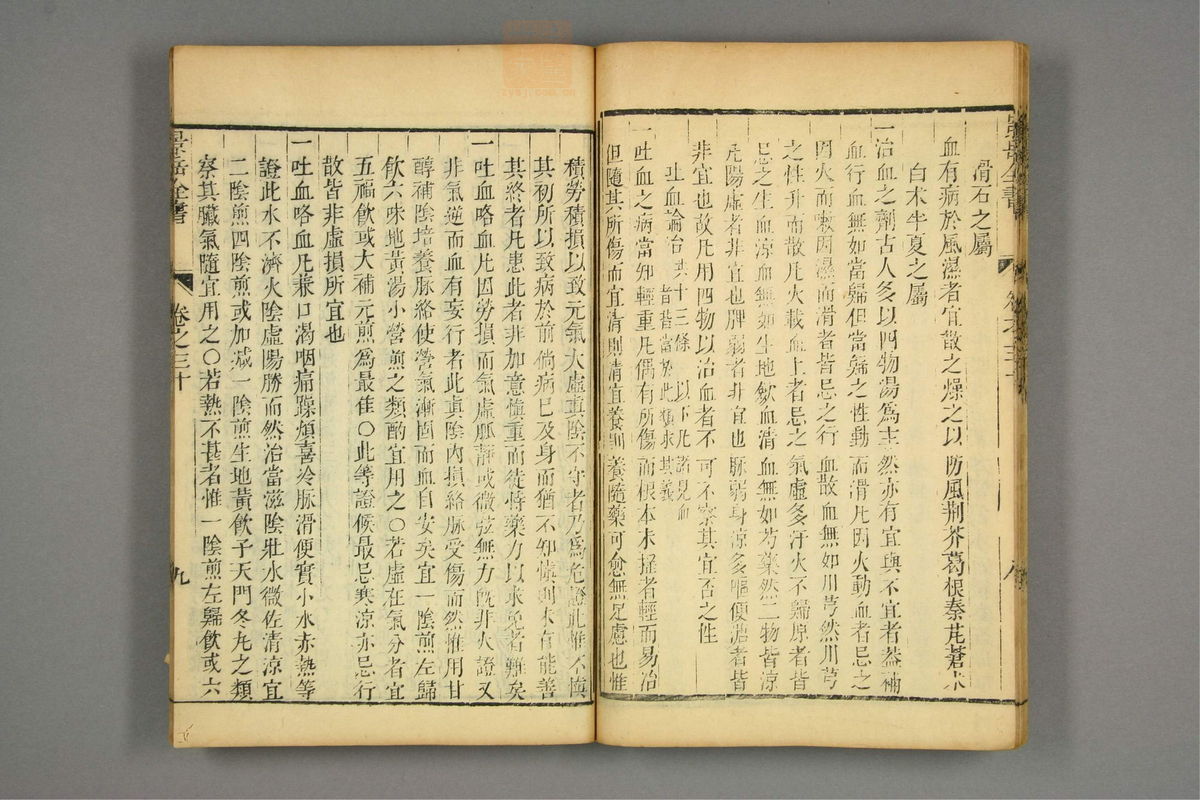 滑石之屬
血有病於風濕者宜散之燥之以防風荆芥葛根秦艽蒼术
白术半夏之屬
一治血之劑古人多以四物湯爲主然亦有宜與不宜者葢補
血行血無如當歸但當歸之性動而滑凡因火動血者忌之
因火而嗽因濕而滑者皆忌之行血散血無如川芎然川芎
之性升而散凡火載血上者忌之氣虛多汗火不歸原者皆
忌之生血凉血無如生地歛血清血無如芍藥然二物皆凉
凡陽虛者非宜也脾弱者非宜也脉弱身凉多嘔便溏者皆
非宜也故凡用四物以治血者不可不察其宜否之性
吐血論治 共十三條 以下凡諸見血
者皆當於此類求其義
一吐血之病當知輕重凡偶有所傷而根本未揺者輕而易治
但隨其所傷而宜清則清宜養則養隨藥可愈無足慮也惟
景岳全書
卷之三十
八
積勞積損以致元氣大虛眞陰不守者乃爲危證此惟不愼
其初所以致病於前倘病已及身而猶不知愼則未有能善
其終者凡患此者非加意愼重而徒恃藥力以求免者難矣
一吐血咯血凡因勞損而氣虛脉靜或微弦無力旣非火證又
非氣逆而血有妄行者此眞陰内損絡脉受傷而然惟用甘
醇補陰培養脉絡使營氣漸固而血自安矣宜一陰煎左歸
飲六味地黃湯小營煎之類酌宜用之○若虛在氣分者宜
五福飲或大補元煎爲最佳○此等證候最忌寒凉亦忌行
散皆非虛損所宜也
一吐血咯血凡兼口渴咽痛躁煩喜冷脉滑便實小水亦熱等
證此水不濟火陰虛陽勝而然治當滋陰壯水微佐清凉宜
二陰煎四陰煎或加減一陰煎生地黃飲子天門冬丸之類
察其臟氣隨宜用之○若熱不甚者惟一陰煎左歸飲或六
景岳全書
卷之三十
九
zysj.com.cn